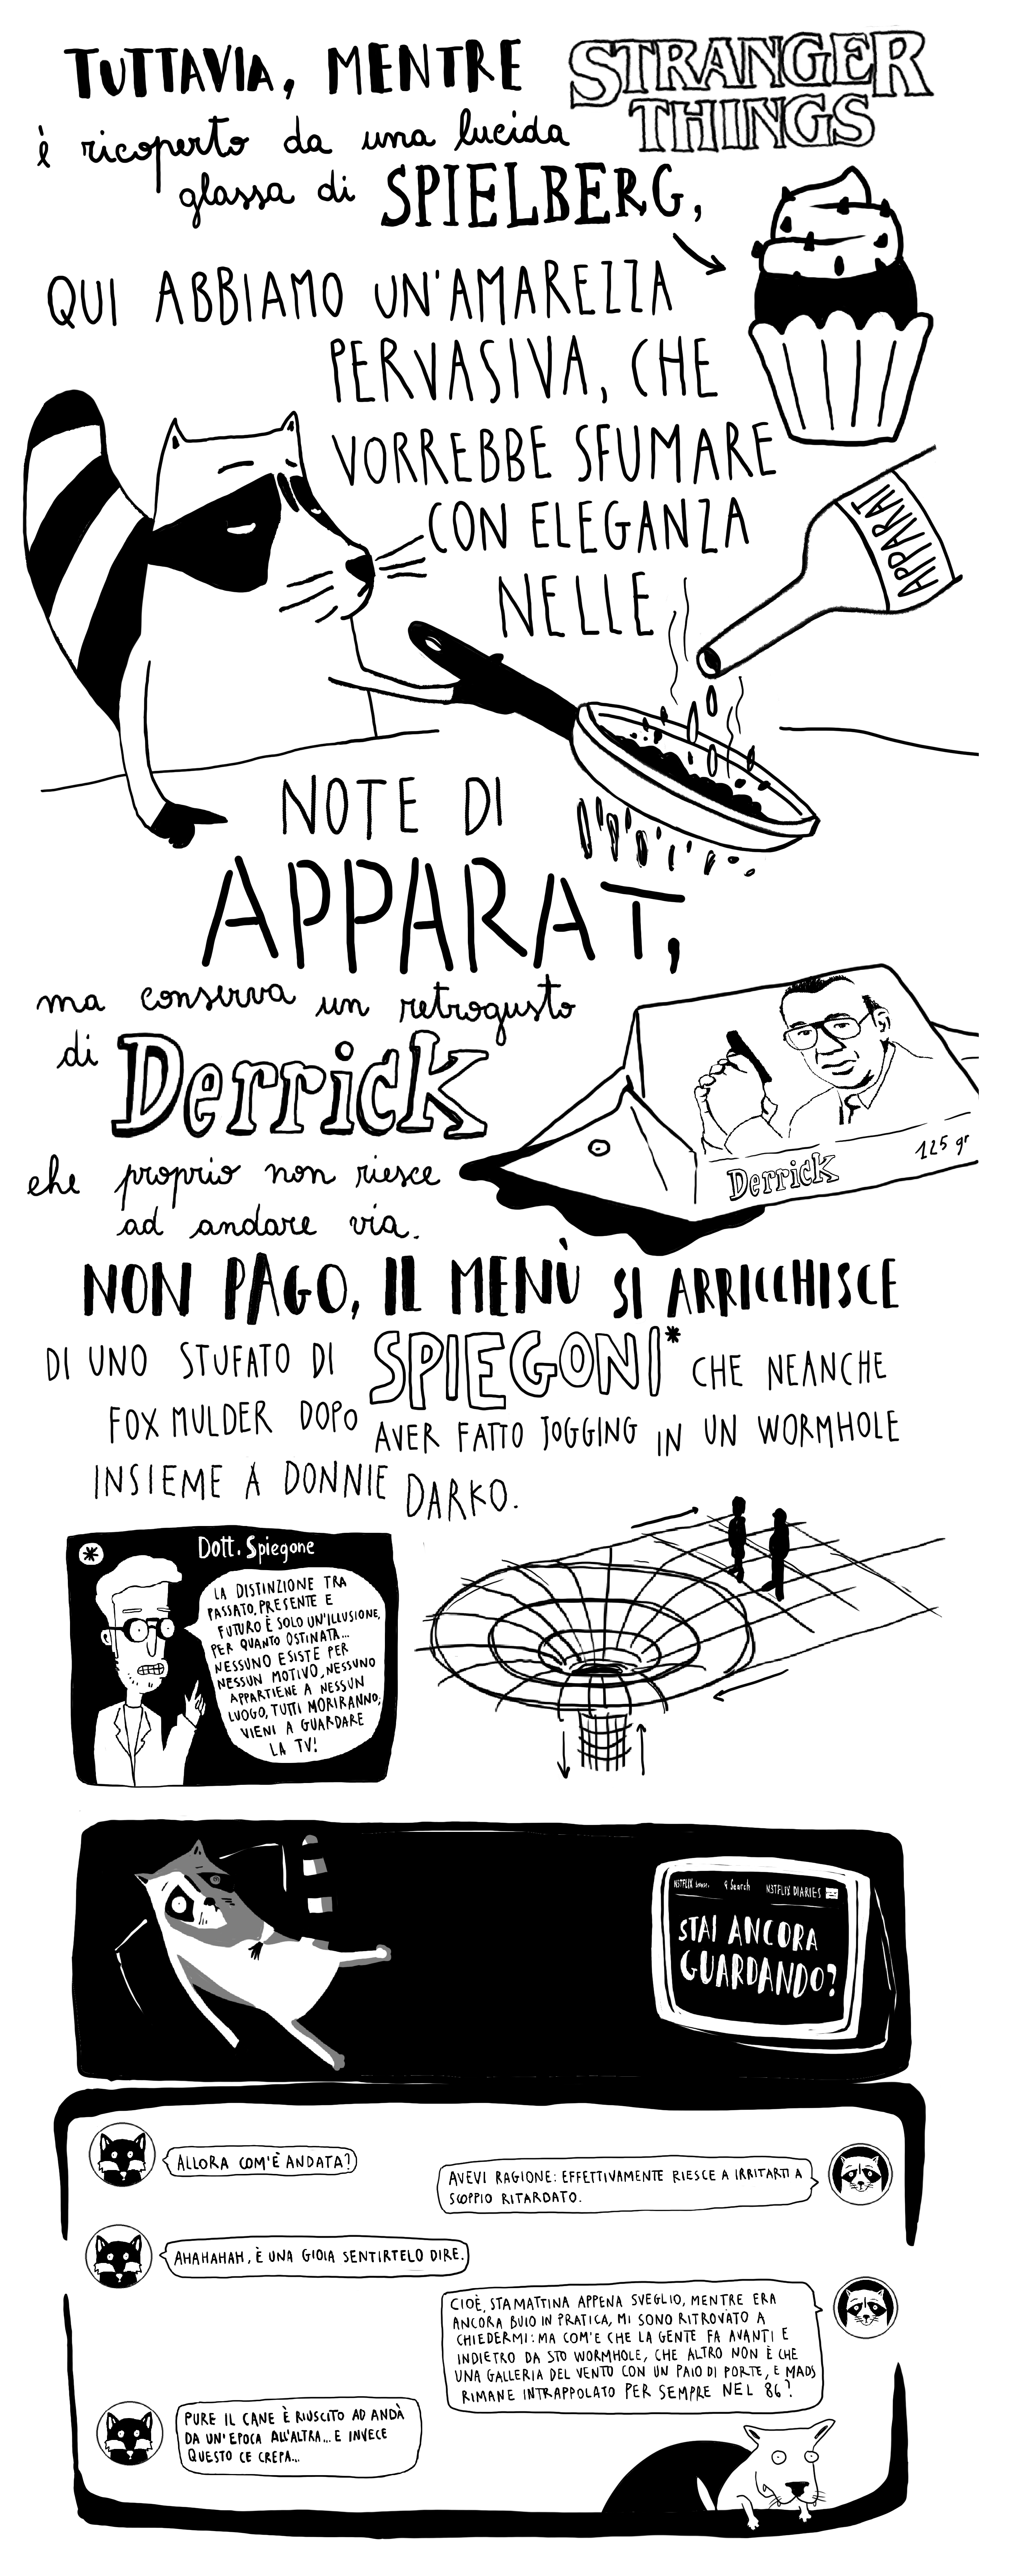 TUTTAVIA, MENTRE STRANGER
THINGS
è ricoperto da una lucida
glassa di SPIELBERG,
QUI ABBIAMO UN'AMAREZZA
PERVASIVA, CHE
VORREBBE SFUMARE
CON ELEGANZA
NELLE
APPARAT
NOTE DI
APPARAT,
ma conserva un retrogusto
di Derrick
che proprio non riesce
ad andare via.
Derrick
125 gr
NON PAGO, IL MENÙ SI ARRICCHISCE
DI UNO STUFATO DI SPIEGONI* CHE NEANCHE
FOX MULDER DOPO AVER FATTO JOGGING IN UN WORMHOLE
INSIEME A DONNIE DARKO.
* Dott. Spiegone
LA DISTINZIONE TRA
PASSATO, PRESENTE E
FUTURO È SOLO UN'ILLUSIONE,
PER QUANTO OSTINATA...
NESSUNO ESISTE PER
NESSUN MOTIVO, NESSUNO
APPARTIENE A NESSUN
LUOGO, TUTTI MORIRANNO;
VIENI A GUARDARE
LA TV!
N3TFLIX Search N3TFLIX DIARIES
STAI ANCORA
GUARDANDO?
ALLORA COM'È ANDATA?
AVEVI RAGIONE: EFFETTIVAMENTE RIESCE A IRRITARTI A
SCOPPIO RITARDATO.
AHAHAHAH, È UNA GIOIA SENTIRTELO DIRE.
CIOÈ, STAMATTINA APPENA SVEGLIO, MENTRE ERA
ANCORA BUIO IN PRATICA, MI SONO RITROVATO A
CHIEDERMI: MA COM'E CHE LA GENTE FA AVANTI E
INDIETRO DA STO WORMHOLE, CHE ALTRO NON È CHE
UNA GALLERIA DEL VENTO CON UN PAIO DI PORTE, E MADS
RIMANE INTRAPPOLATO PER SEMPRE NEL 86?
PURE IL CANE È RIUSCITO AD ANDÀ
DA UN'EPOCA ALL'ALTRA... E INVECE
QUESTO CE CREPA...